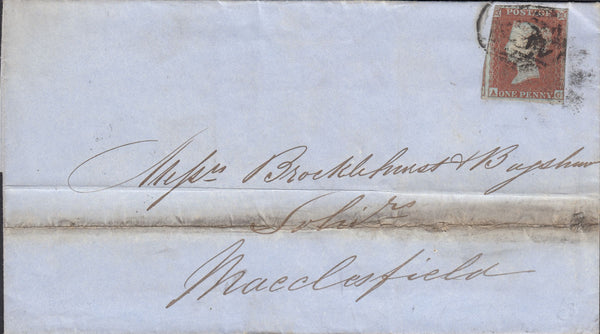 POSTAGE
A ONE PENNY
Messrs Brocklehurst & Bagshaw
Solicrs
Macclesfield